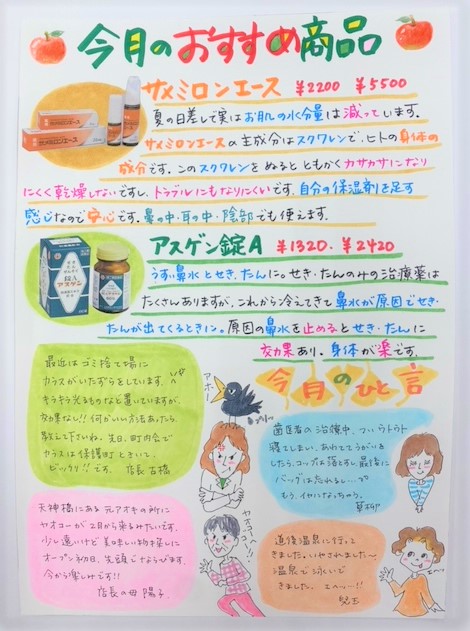 今月のおすすめ商品
サメミロンエース ¥2200 ¥5500
夏の日差しで実はお肌の水分量は減っています。
サメミロンエースの主成分はスクワレンで、ヒトの身体の
成分です。このスクワレンをぬるとともかくカサカサになり
にくく乾燥しないですし、トラブルにもなりにくいです。自分の保湿剤を足す
感じなので安心です。鼻の中・耳の中・陰部でも使えます。
アスゲン錠A ¥1320. ¥2420
うすい鼻水とせき、たんに。せき・たんのみの治療薬は
たくさんありますが、これから冷えてきて鼻水が原因でせき・
たんが出てくるときに。原因の鼻水を止めるとせき・たんに
効果あり。身体が楽です。
最近はゴミ捨て場に
カラスがいたずらをしています。
キラキラ光るものなど置いていますが、
効果なし!!何かいい方法あったら
教えて下さいね。先日、町内会で
カラスは保護町ときいて、
ビックリ!!です。店長 古橋
アホー
今月のひと言
歯医者の治療中、ついウトウト
寝てしまい、あわててうがいを
したら、コップを落とすし、最後に
バッグは忘れるし…
もう、イヤになっちゃう。
草柳
天神橋にある元アオキの所に
ヤオコーが2月から来るみたいです。
少し遠いけど美味しい物探しに
オープン初日、先頭でならびます。
今から楽しみです!!
店長の母 陽子
道後温泉に行って
きました。いやされました〜
温泉で泳いで
きました。エへ…!!